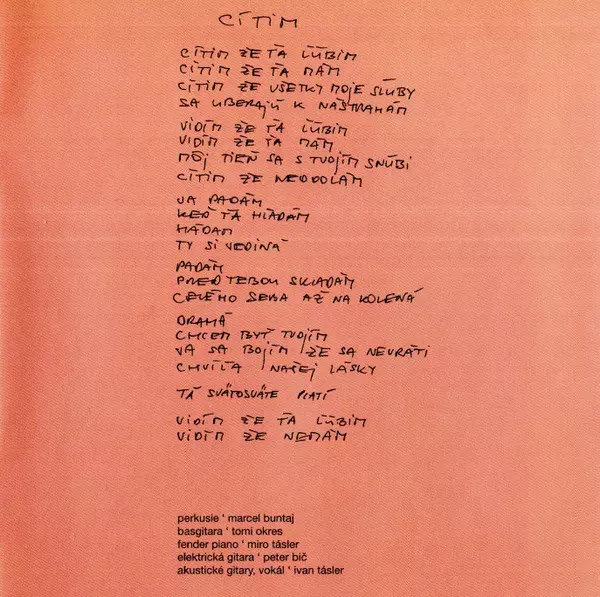 CÍTIM
CÍTIM ŽE ŤA ĽÚBIM
CÍTIM ŽE ŤA MÁM
CÍTIM ŽE VŠETKY MOJE SĽUBY
SA UBERAJÚ K NÁSTRAHÁM
VIDÍM ŽE ŤA ĽÚBIM
VIDÍM ŽE ŤA MÁM
MÔJ TIEŇ SA S TVOJÍM SNÚBI
CÍTIM ŽE NEODOLÁM
JA PADÁM
KEĎ ŤA HĽADÁM
HÁDAM
TY SI JEDINÁ
PADÁM
PRED TEBOU SKLADÁM
CELÉHO SEBA AŽ NA KOLENÁ
DRAHÁ
CHCEM BYŤ TVOJÍM
JA SA BOJÍM ŽE SA NEVRÁTI
CHVÍĽA NAŠEJ LÁSKY
TÁ SVÄTOSVÄTE PLATÍ
VIDÍM ŽE ŤA ĽÚBIM
VIDÍM ŽE NEMÁM
perkusie ‘ marcel buntaj
basgitara ‘ tomi okres
fender piano ‘ miro tásler
elektrická gitara ‘ peter bič
akustické gitary, vokál ‘ ivan tásler